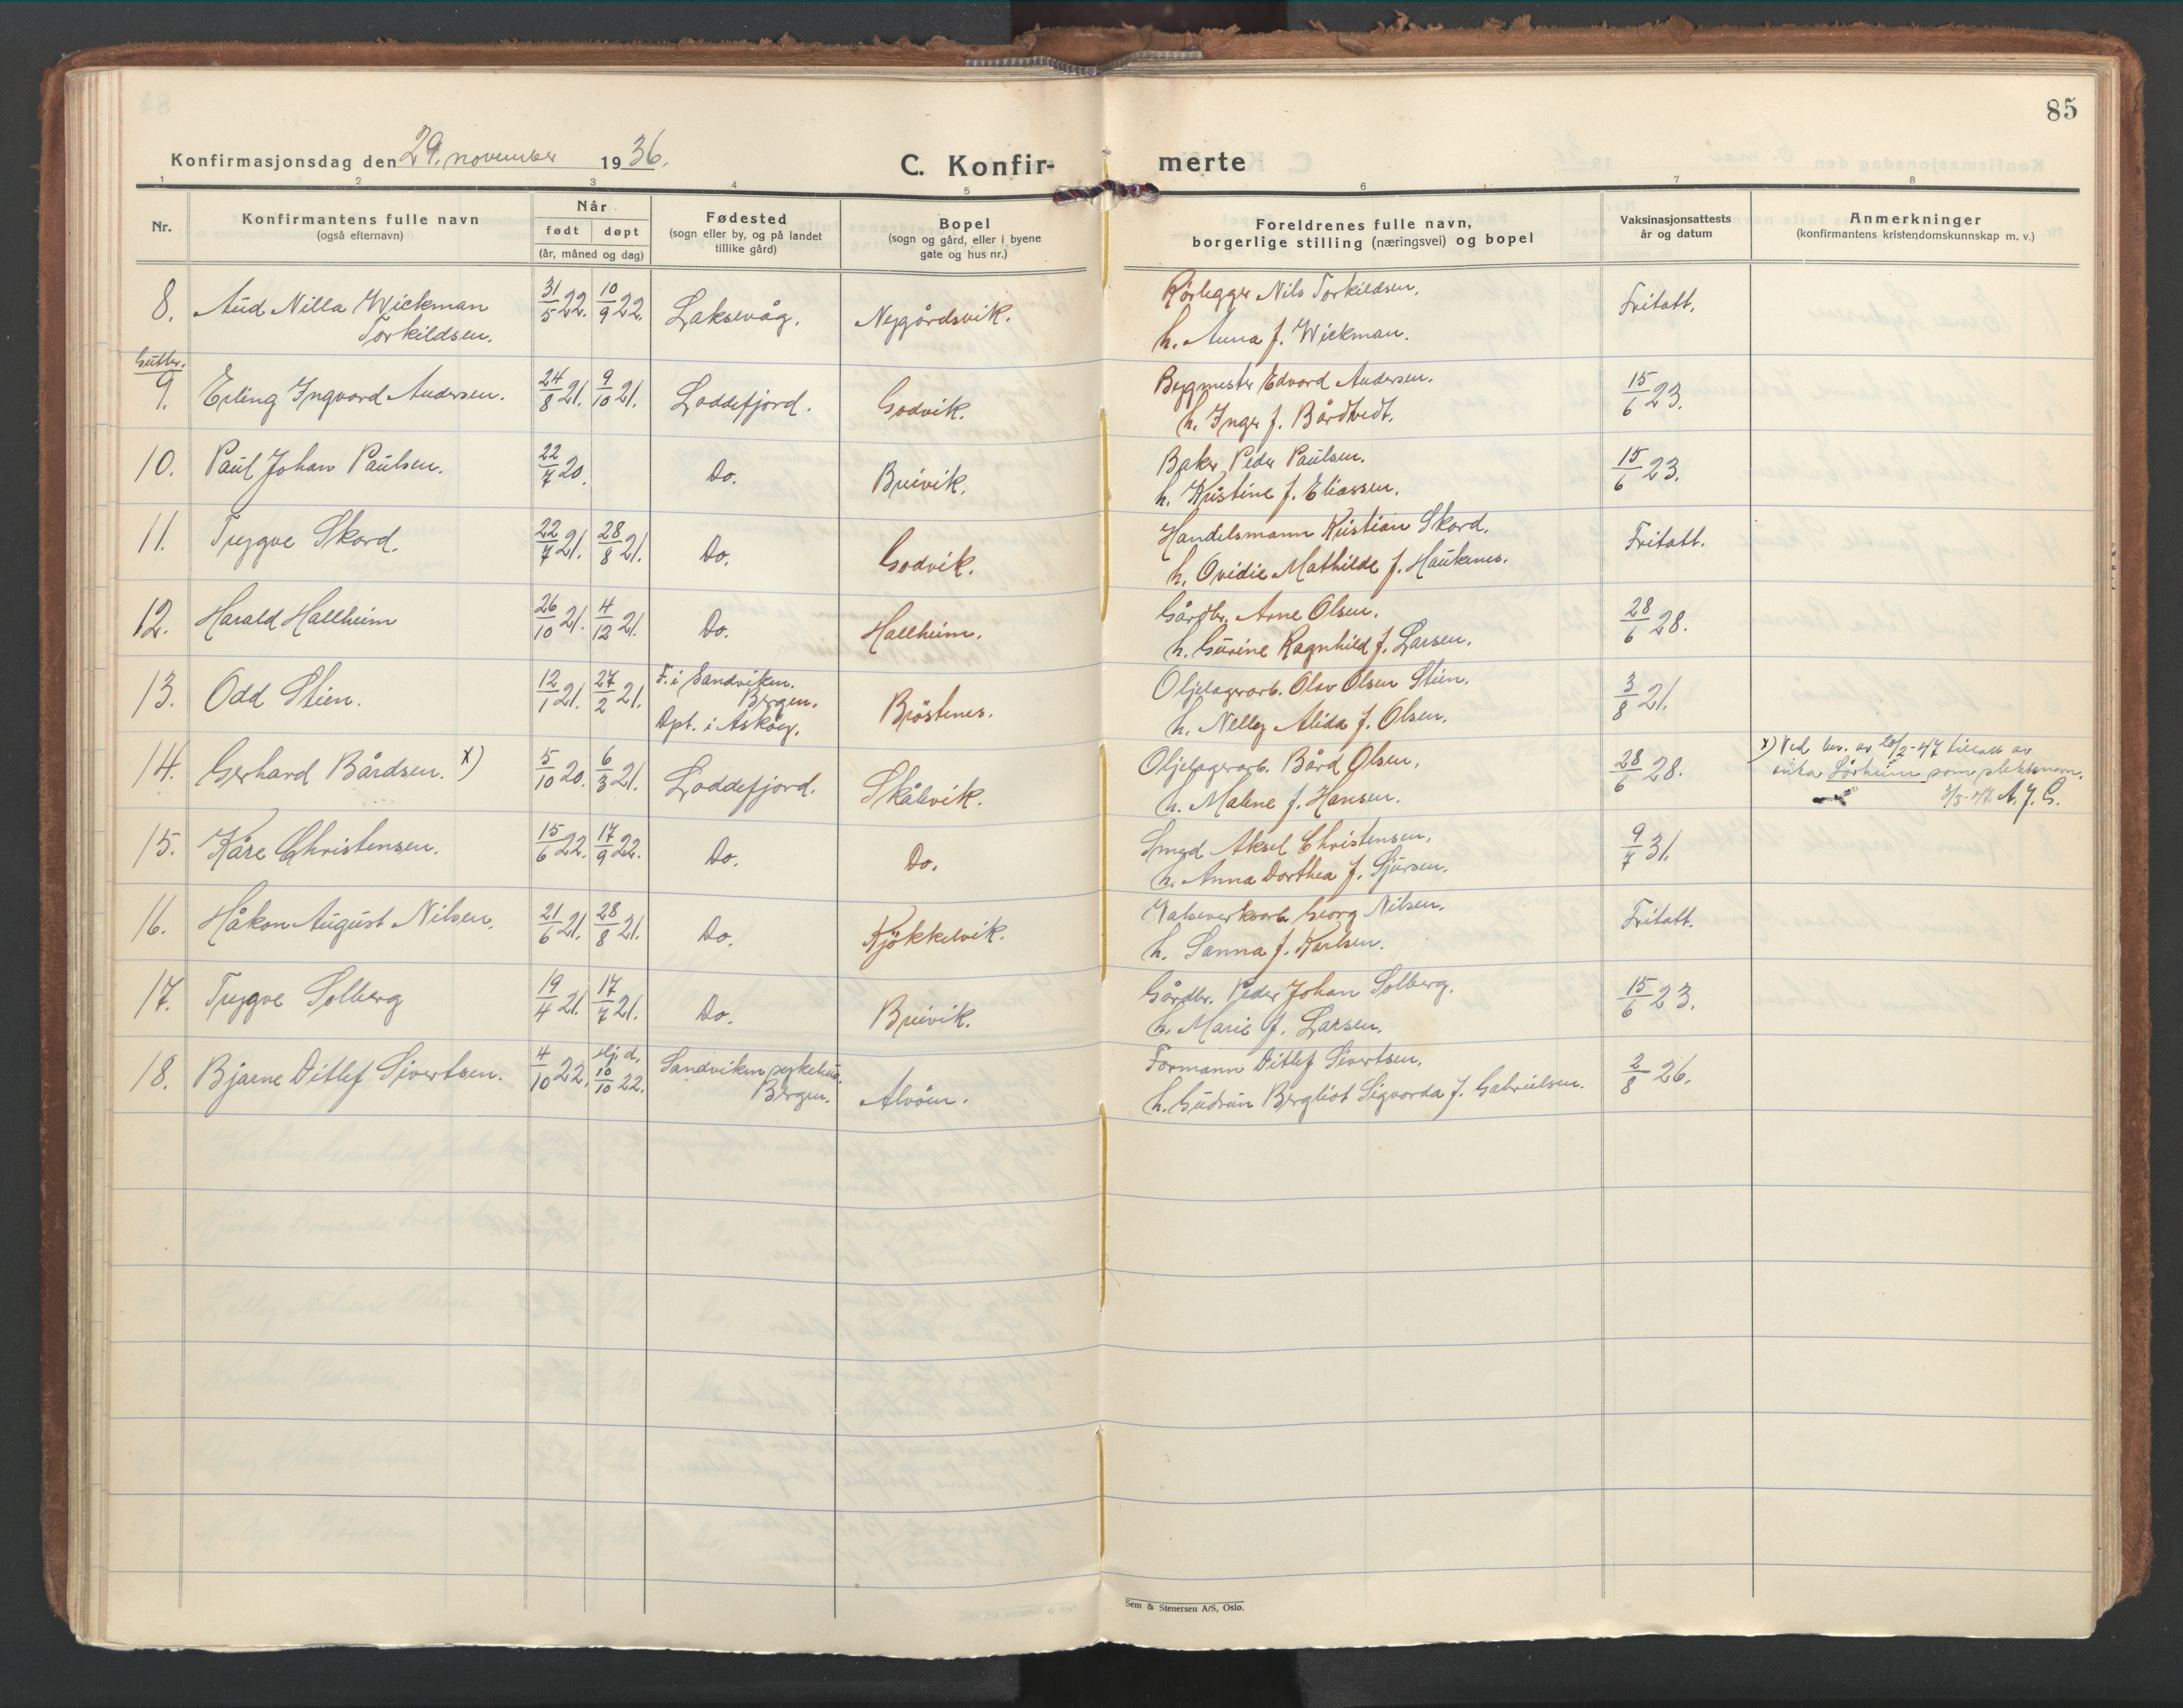 85
Konfirmasjonsdag den 29. november 1936.
C. Konfir-
merte
1 2 3 4 5 6 7 8
Nr.
Konfirmantens fulle navn
(også efternavn)
Når
født døpt
(år, måned og dag)
Fødested
(sogn eller by, og på landet
tillike gård)
Bopel
(sogn og gård, eller i byene
gate og hus nr.)
Foreldrenes fulle navn,
borgerlige stilling (næringsvei) og bopel
Vaksinasjonsattests
år og datum
Anmerkninger
(konfirmantens kristendomskunnskap m. v.)
8. Aud Nilla Wickman 31/5 22. 10/9 22. Laksevåg. Nygårdsvik. Rørlegger Nils Torkildsen, Fritatt.
Torkildsen. h. Anna f. Wickman.
Gutter.
9. Erling Ingvard Andersen. 24/8 21. 9/10 21. Loddefjord. Godvik. Bygmester Edvard Andersen. 15/6 23.
h. Inger f. Bårdtvedt.
10. Paul Johan Paulsen. 22/7 20. Do. Breivik. Baker Peder Paulsen. 15/6 23.
h. Kristine f. Eliassen.
11. Trygve Skard. 22/7 21. 28/8 21. Do. Godvik. Handelsmann Kristian Skard. Fritatt.
h. Ovidie Mathilde f. Haukenes.
12. Harald Hallheim 26/10 21. 4/12 21. Do. Hallheim. Gårdbr. Arne Olsen. 28/6 28.
h. Gurine Ragnhild f. Larsen.
13. Odd Stien. 12/1 21. 27/2 21. F. i Sandviken. Brøstenes. Oljelagerarb. Olav Olsen Stien. 3/8 21.
Bergen.
Dpt. i Askøy. h. Nelly Alida f. Olsen.
14. Gerhard Bårdsen. x) 5/10 20. 6/3 21. Loddefjord. Skålevik. Oljelagerarb. Bård Olsen, 28/6 28. x) Ved bev. av 20/2-47 tillatt av
h. Malene f. Hansen. anta Sørheim som slektsnavn.
3/3-47. A. J. G.
15. Kåre Christensen. 15/6 22. 17/9 22. Do. Do. Smed Aksel Christensen, 9/7 31.
h. Anna Dorthea f. Sjursen.
16. Håkon August Nilsen. 21/6 21. 28/8 21. Do. Kjøkkelvik. Valseverksarb. Georg Nilsen. Fritatt.
h. Sanna f. Karlsen.
17. Trygve Solberg 19/4 21. 17/7 21. Do. Breivik. Gårdbr. Peder Johan Solberg. 15/6 23.
h. Marie f. Larsen.
18. Bjarne Ditlef Sivertsen. 4/10 22. Hj. d. 10/10 22. Sandviken sykehus, Alvøen. Formann Ditlef Sivertsen. 2/8 26.
Bergen. h. Gudrun Bergliot Sigvarda f. Gabrielsen.
Sem & Stenersen A/S, Oslo.